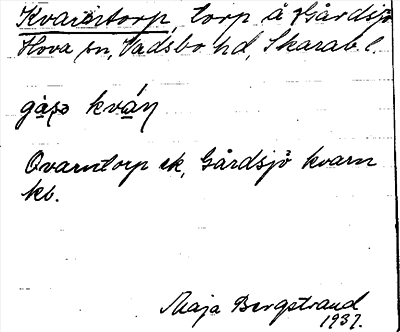 Kvarntorp, torp å Gårdsjö
Hova sn, Vadsbo hd, Skarab. l.
kván
Qvarntorp ek, Gårdsjö kvarn
kb.
Maja Bergstrand
1937.